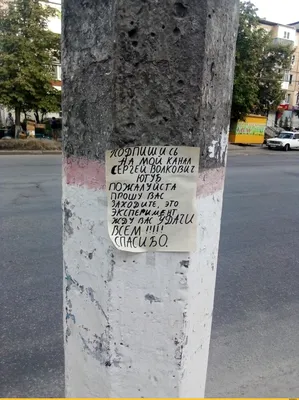 ПОДПИШИСЬ
НА МОЙ КАНАЛ
СЕРГЕЙ ВОЛКОВИЧ
ЮТУБ
ПОЖАЛУЙСТА
ПРОШУ ВАС
ЗАХОДИТЕ, ЭТО
ЭКСПЕРИМЕНТ
ЖДУ ВАС УДАЧИ
ВСЕМ !!!!!
СПАСИБО.